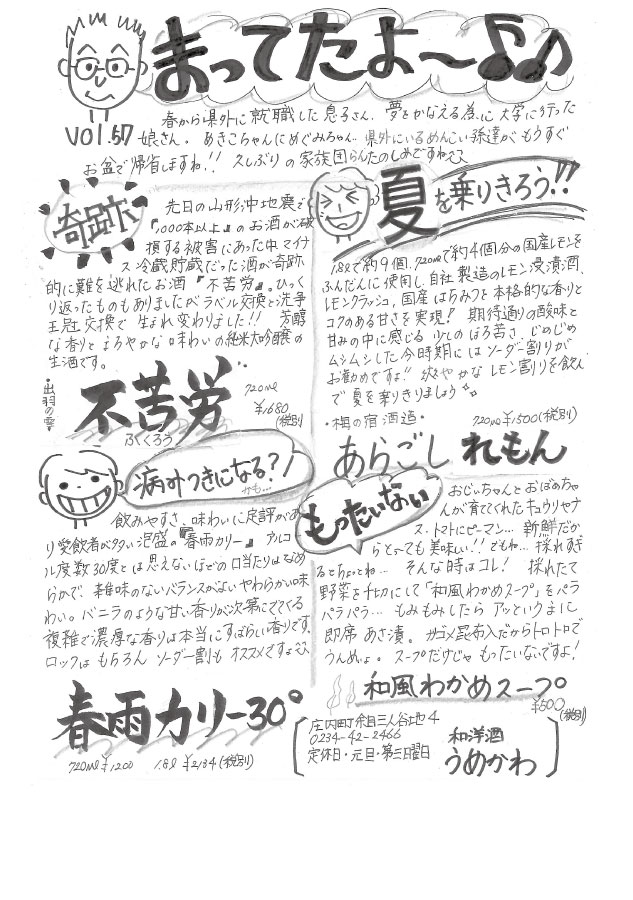 まってたよ～♫♪
vol.57
春から県外に就職した息子さん、夢をかなえる為に大学に行った
娘さん。あきこちゃんにめぐみちゃん…県外にいるめんこい孫達がもうすぐ
お盆で帰省しますね!! 久しぶりの家族団らんたのしみですね
奇跡
先日の山形沖地震で
『1,000本以上』のお酒が破
損する被害にあった中マイナ
ス冷蔵貯蔵だった酒が奇跡
的に難を逃れたお酒『不苦労』。ひっく
り返ったものもありましたがラベル交換と洗浄
王冠交換で生まれ変わりました!! 芳醇
な香りとまろやかな味わいの純米大吟醸の
生酒です。
・出羽の雪・
不苦労
ふくろう
720ml
¥1680
(税別)
夏を乗りきろう!!
1.8lで約9個、720mlで約4個分の国産レモンを
ふんだんに使用し、自社製造のレモン浸漬酒、
レモンクラッシュ、国産はちみつを本格的な香りと
コクのある甘さを実現! 期待通りの酸味と
甘みの中に感じる少しのほろ苦さ、じめじめ
ムシムシした今時期にはソーダー割りが
お勧めですよ!! 爽やかなレモン割りを飲ん
で夏を乗りきりましょう
・梅の宿酒造・
720ml ¥1500(税別)
あらごしれもん
病みつきになる?!
かも…
飲みやすさ、味わいに定評があ
り愛飲者が多い泡盛の『春雨カリー』アルコ
ール度数30度とは思えないほどの口当たりはなめ
らかで、雑味のないバランスがよいやわらかい味
わい。バニラのような甘い香りが次第にでてくる
複雑で濃厚な香りは本当にすばらしい香りです。
ロックはもちろんソーダー割もオススメですよ
春雨カリー30°
720ml ¥1200 1.8l ¥2134(税別)
もったいない
おじぃちゃんとおばぁちゃ
んが育ててくれたキュウリやナ
ス、トマトにピーマン…新鮮だか
らと〜っても美味しい!! でもね…採れすぎ
るとちょっとね… そんな時はコレ! 採れたて
野菜をナヒカにして「和風わかめスープ」をパラ
パラパラ… もみもみしたらアッというまに
即席あさ漬。ガゴメ昆布入だからトロトロで
うんめぃよ。スープだけじゃもったいないですよ!
和風わかめスープ
¥500
(税別)
庄内町余目三人谷地4
0234-42-2466
定休日・元旦・第三日曜日
和洋酒
うめかわ